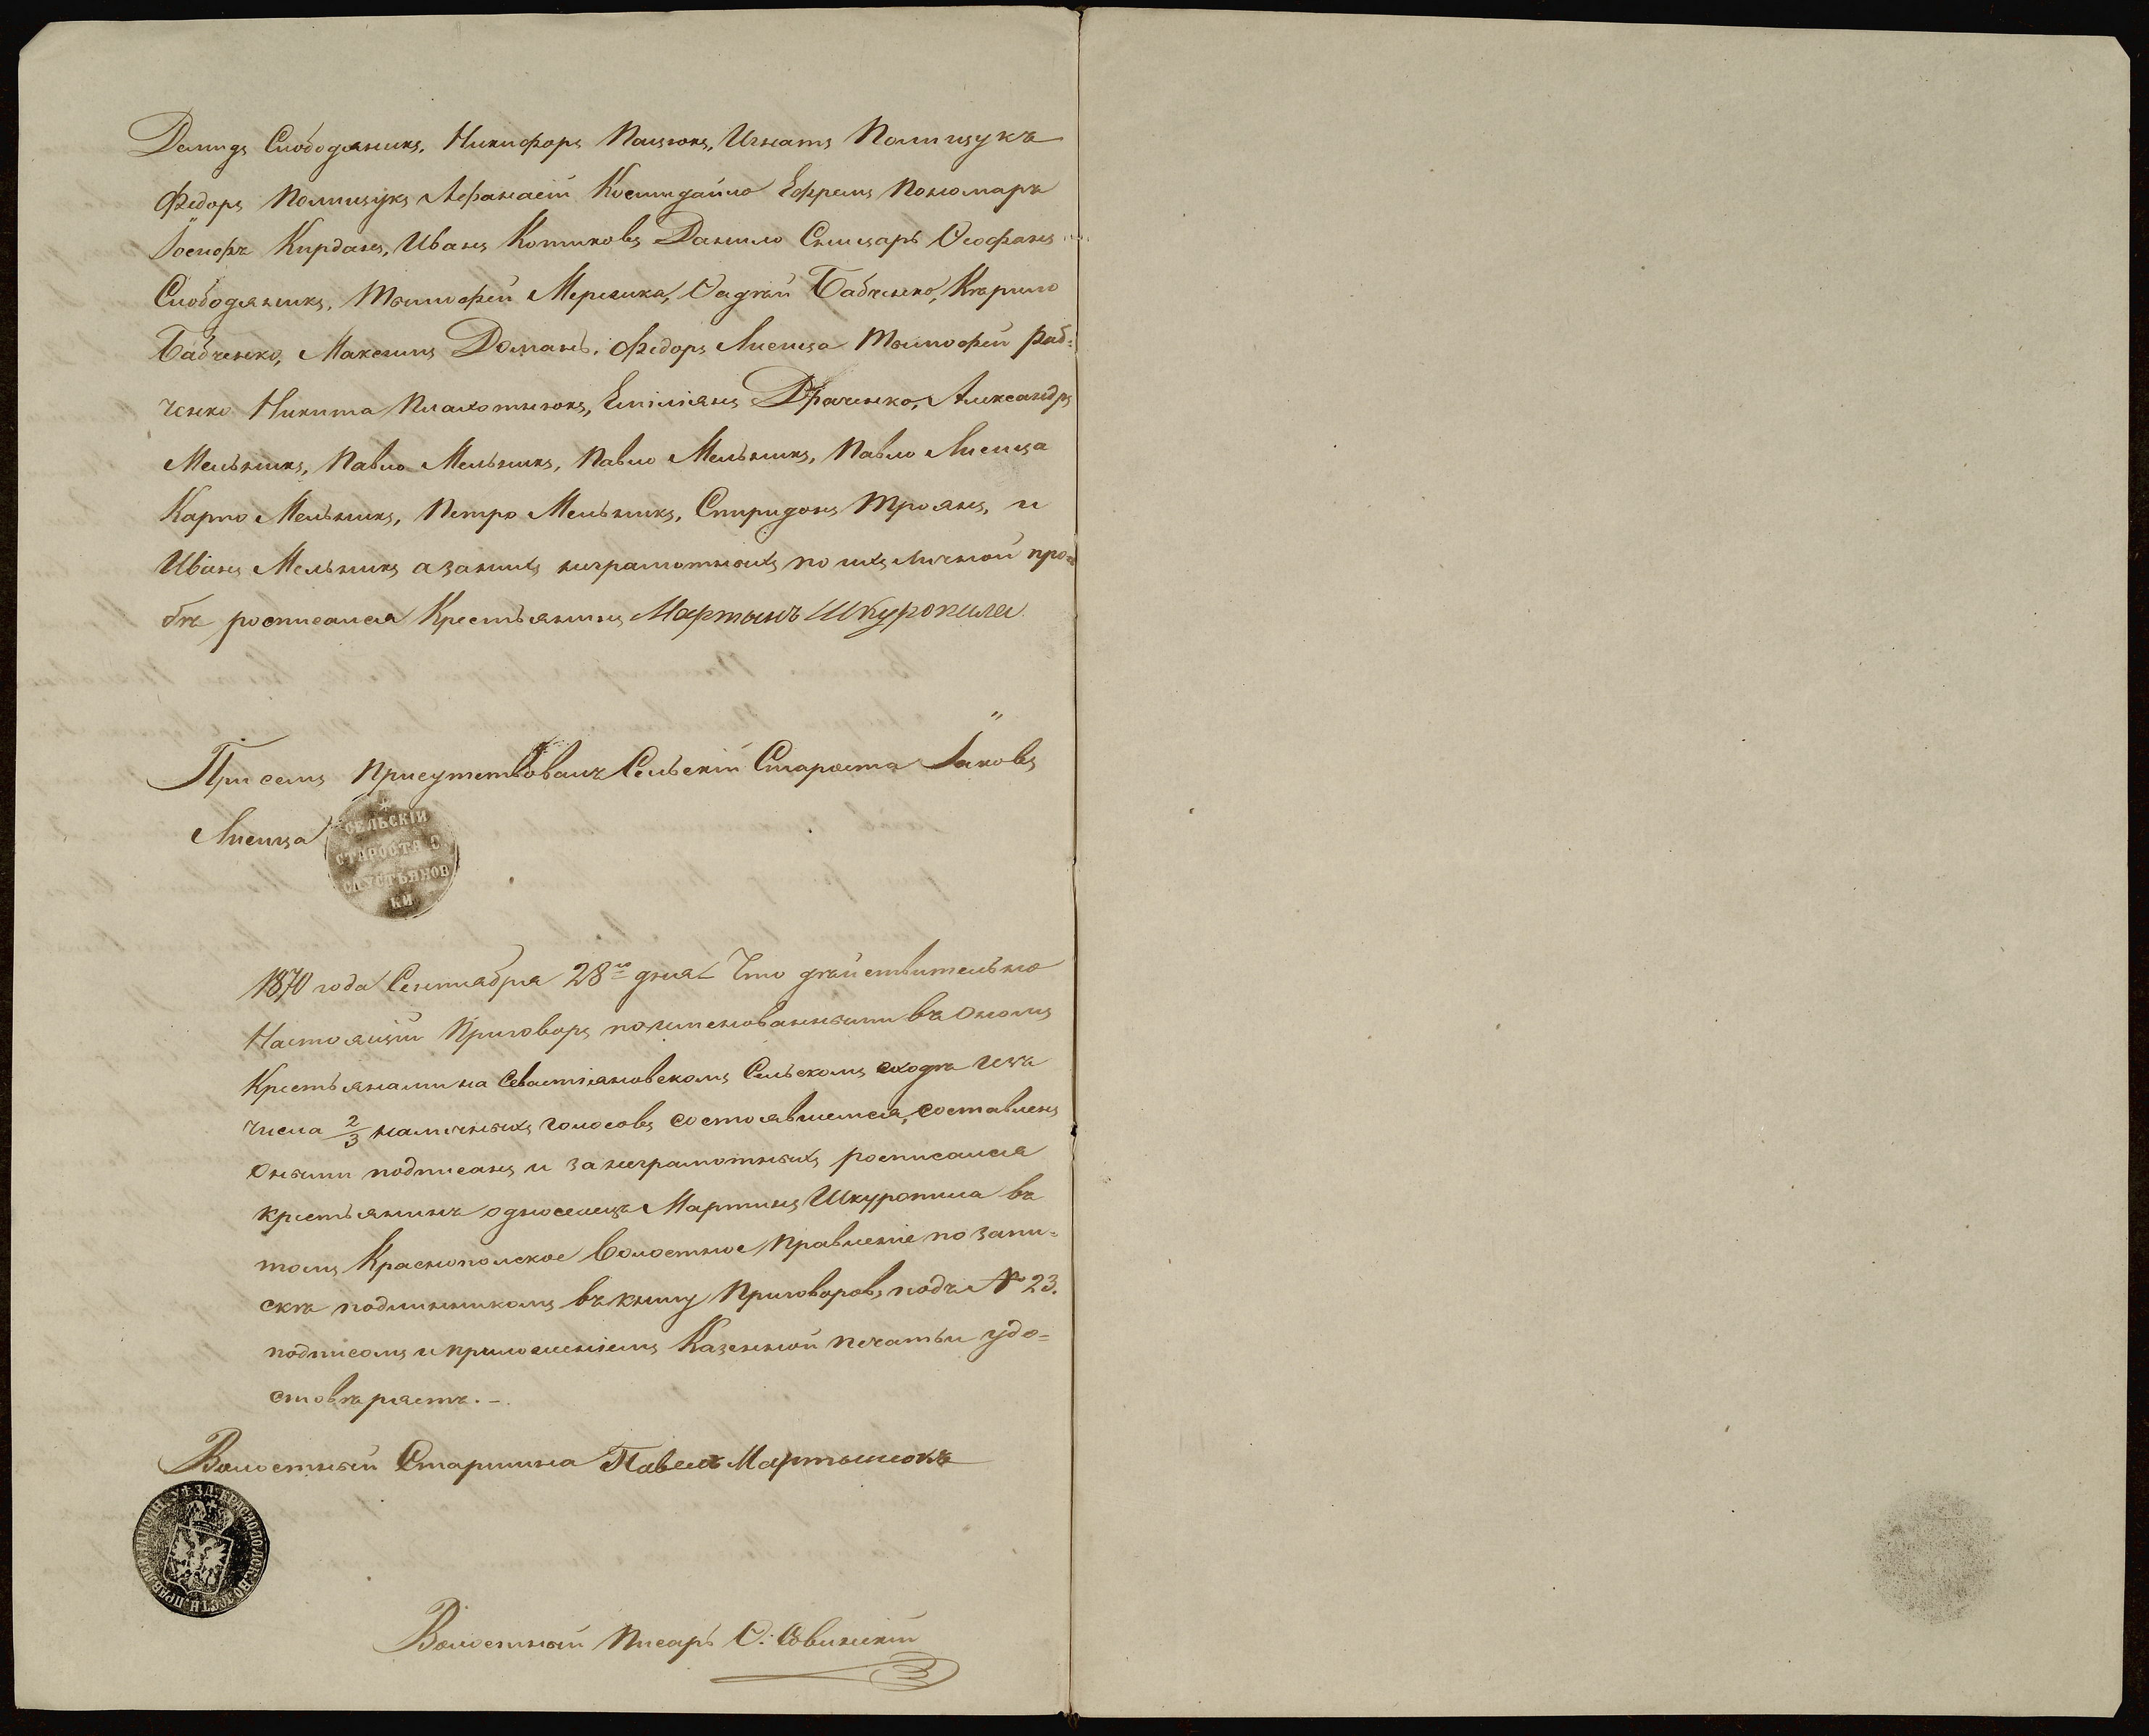 Демидъ Слободяникъ, Никифоръ Пацюкъ, Игнатъ Полищукъ
Федоръ Полищукъ Афанасій Костидайло Ефремъ Пономарь
Іосифъ Кирданъ, Иванъ Котиковъ Данило Слисарь Ѳеофанъ
Слободяникъ, Тымофей Мережка, Фадѣй Бабченко, Кѣрило
Бабченко, Максимъ Доманъ, Федоръ Лисица Тымофей Раб-
ченко Никита Плахотнюкъ, Емпіліянъ Драченко, Александръ
Мельникъ, Павло Мельникъ, Павло Мельникъ, Павло Лисица
Карпо Мельникъ, Петро Мельникъ, Спиридонъ Троянъ, и
Иванъ Мельникъ а занихъ неграмотныхъ по ихъ личной прос-
бѣ росписался Крестьянинъ Мартынъ Шкуропила
При семъ присутствовалъ Сельскій Староста Іаковъ
Лисица
СЕЛЬСКІЙ
СТАРОСТА С.
СЕУСТЬЯНОВ
КИ
1870 года Сентября 28го дня Что дѣйствительно
Настоящій Приговоръ поименованными въ ономъ
Крестьянами на Севастіяновскомъ Сельскомъ сходѣ изъ
числа 2/3 наличныхъ голосовъ состоявшемся, составленъ
оными подписанъ и за неграмотныхъ росписался
крестьянинъ односелецъ Мартинъ Шкуропила въ
томъ Краснопольское Волостное Правленіе по запи-
скѣ подлинникомъ въ книгу Приговоровъ подъ № 23.
подписомъ и приложеніемъ Казенной печати удо-
стовѣряетъ.-
Волостный Старшина Павелъ Мартынюкъ
УѢЗД. КРАСНОПОЛСК. ВОЛОСТН. ПРАВЛЕН.
Волостный Писарь